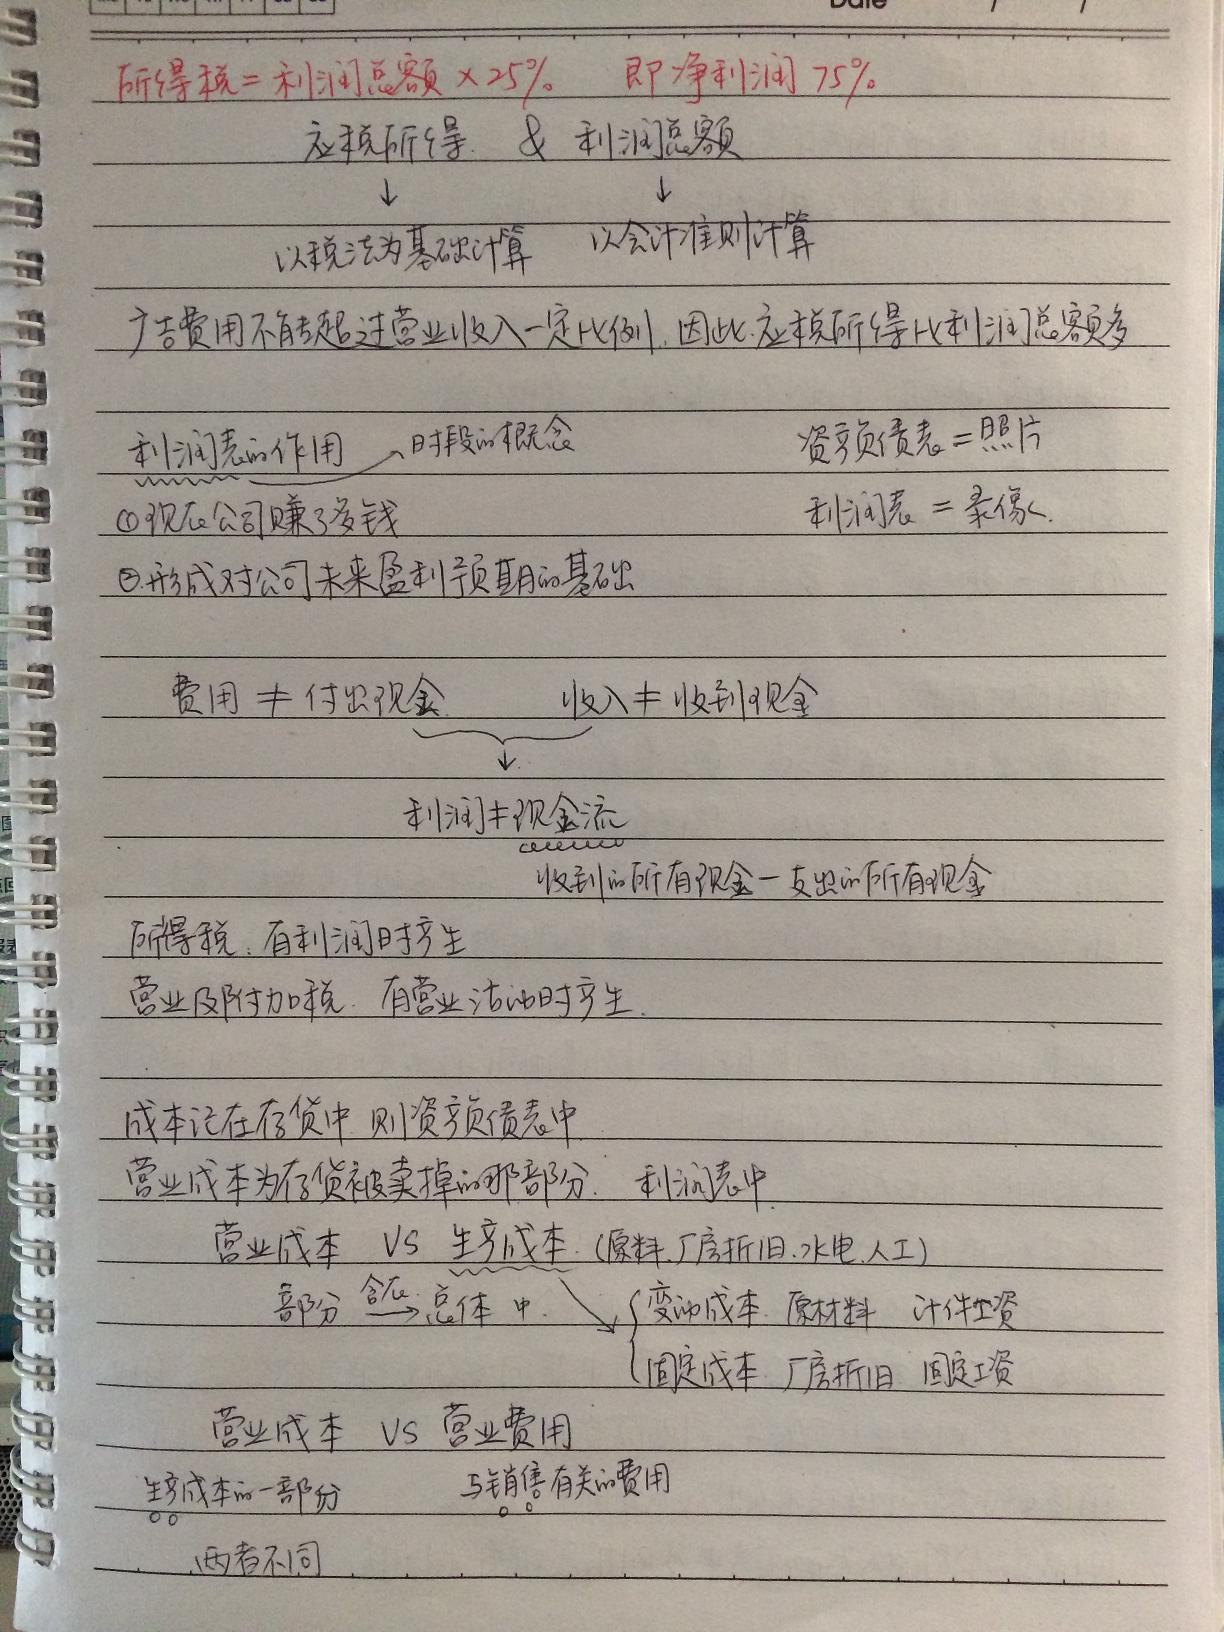 Date / /
所得税=利润总额×25% 即净利润75%
应税所得 & 利润总额
↓ ↓
以税法为基础计算 以会计准则计算
广告费用不能超过营业收入一定比例,因此应税所得比利润总额多
利润表的作用 时段的概念 资负债表=照片
①现在公司赚了多钱 利润表=录像
②形成对公司未来盈利预期的基础
费用≠付出现金 收入≠收到现金
↓
利润≠现金流
收到的所有现金-支出的所有现金
所得税:有利润时产生
营业及附加税 有营业活动时产生.
成本记在存货中 则资负债表中
营业成本为存货被卖掉的那部分. 利润表中
营业成本 VS 生产成本.(原料.厂房折旧.水电.人工)
部分 含在→ 总体中. 变动成本 原材料 计件工资
固定成本 厂房折旧 固定工资
营业成本 VS 营业费用
生产成本的一部分 与销售有关的费用
两者不同